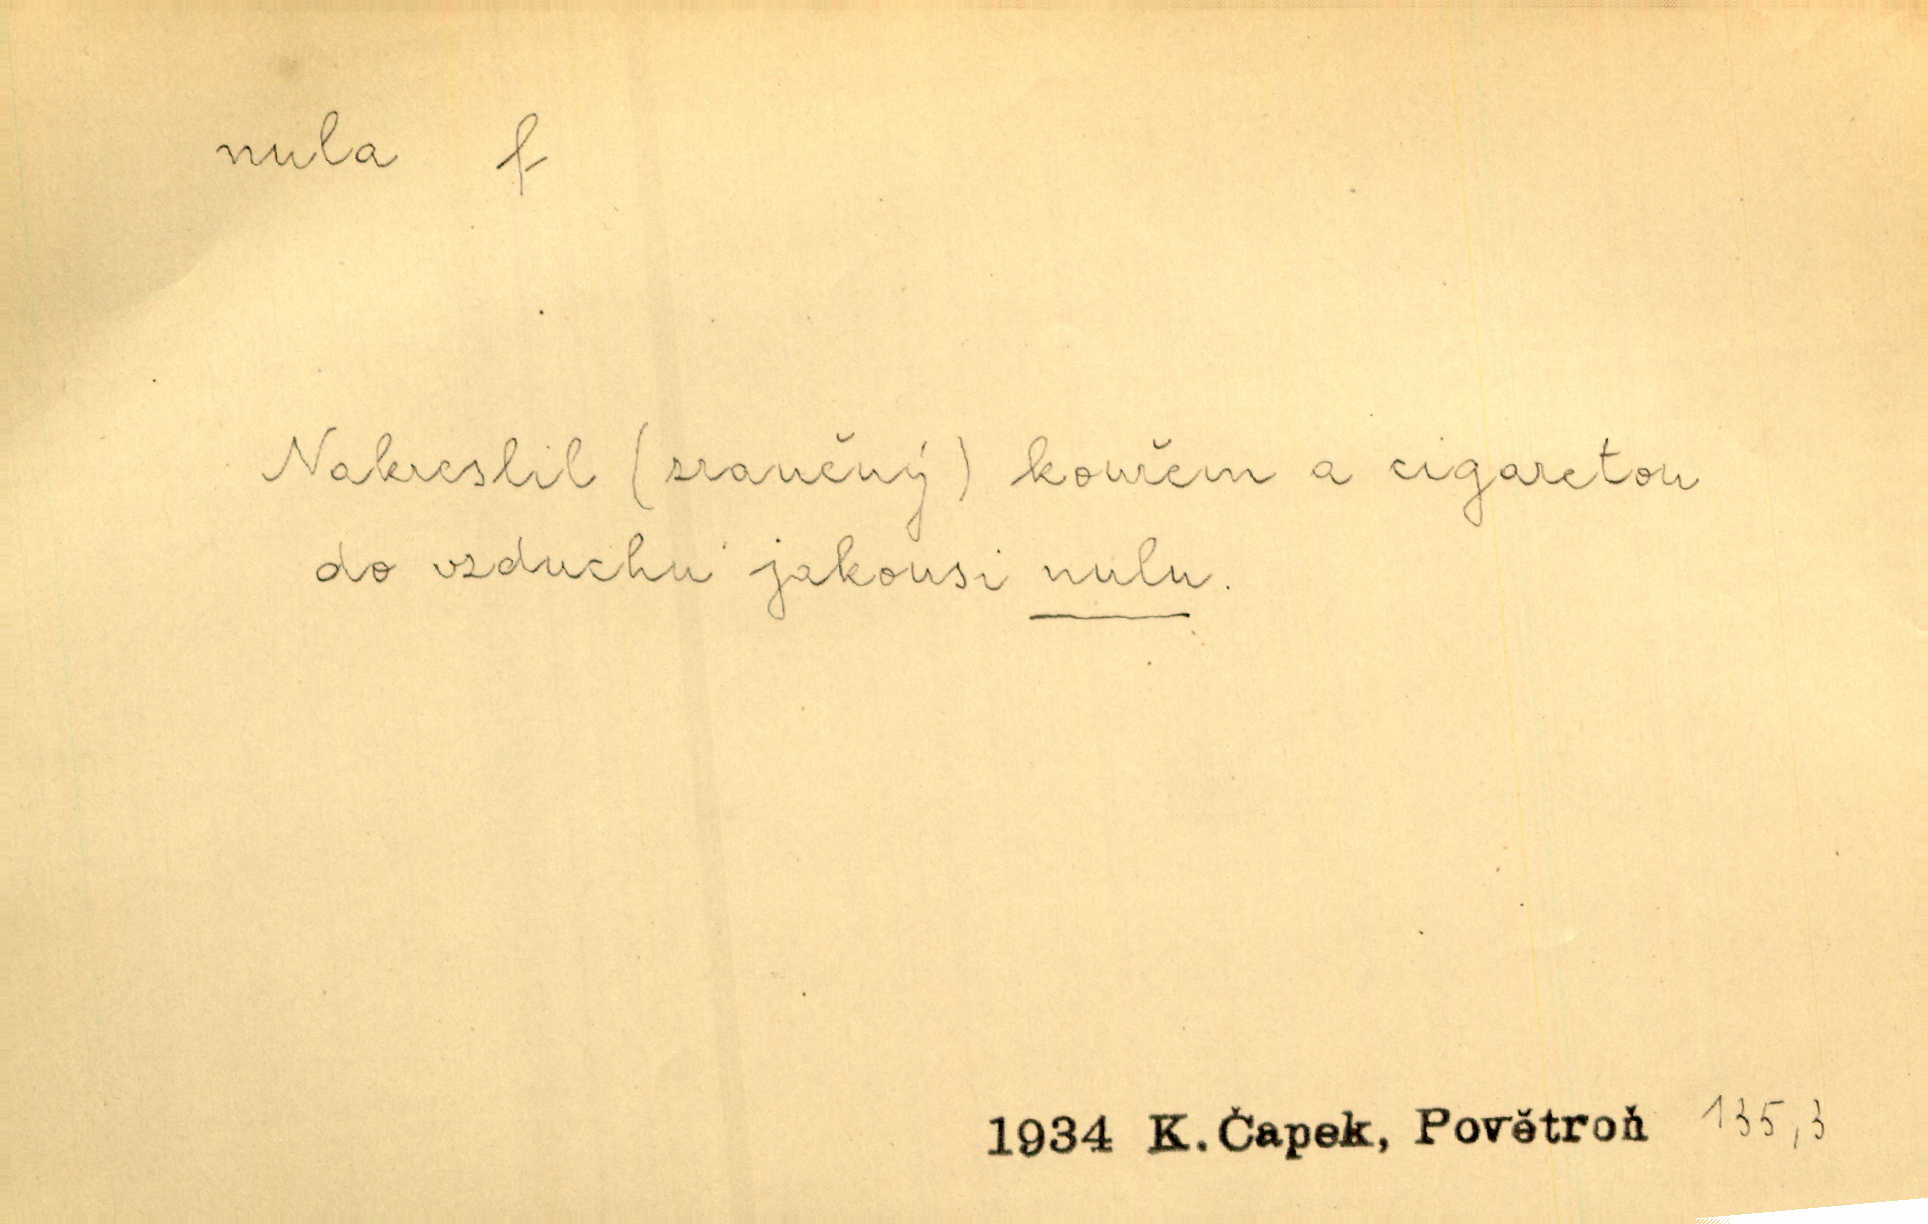 nula f
Nakreslil (zraněný) kouřem a cigaretou
do vzduchu jakousi nulu.
1934 K. Čapek, Povětroň 135,3